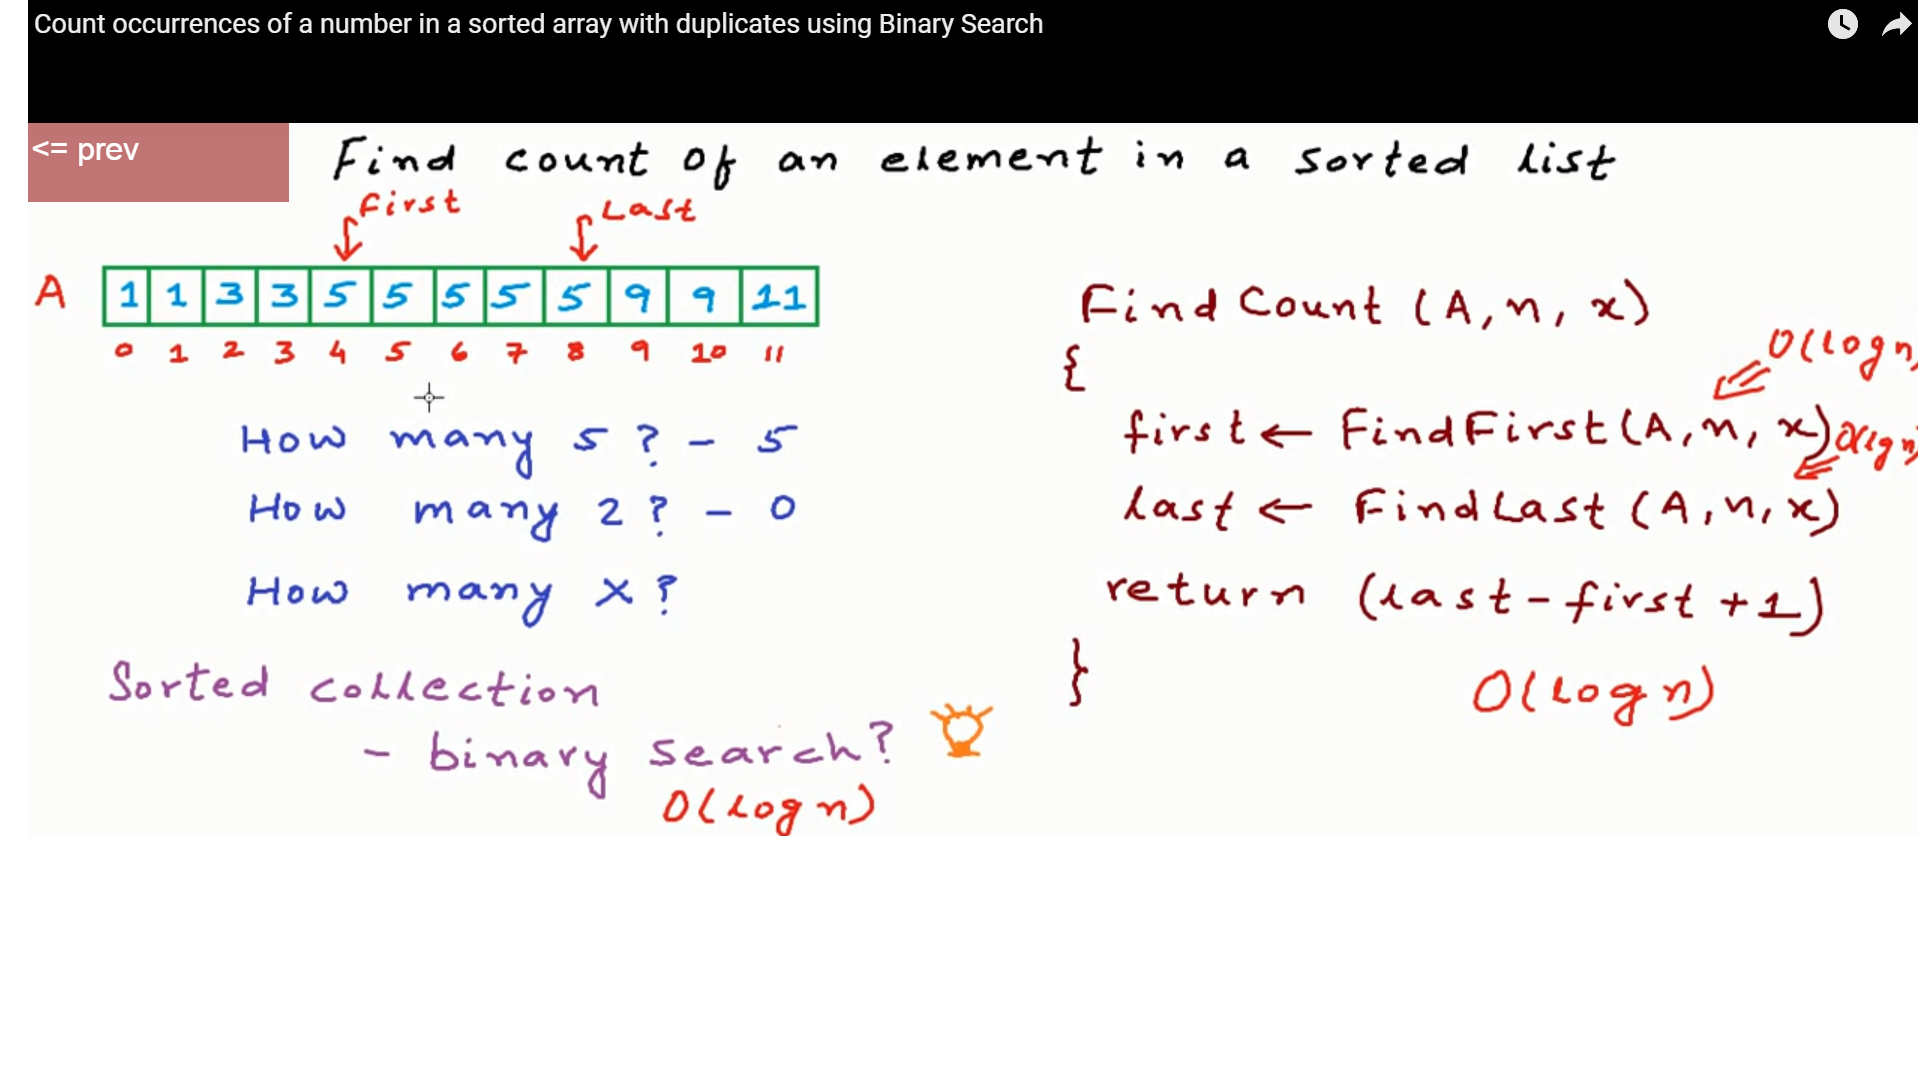 Count occurrences of a number in a sorted array with duplicates using Binary Search
<= prev
Find count of an element in a sorted list
First
Last
A 1 1 3 3 5 5 5 5 5 9 9 11
0 1 2 3 4 5 6 7 8 9 10 11
How many 5 ? - 5
How many 2 ? - 0
How many x ?
Sorted collection
- binary search?
O(log n)
FindCount (A, n, x)
{
O(log n)
first ← FindFirst (A, n, x)
O(lg n)
last ← FindLast (A, n, x)
return (last - first + 1)
}
O(log n)